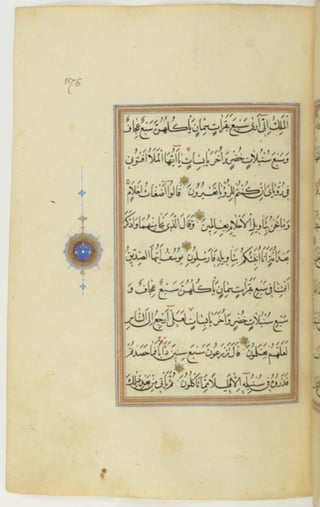 ١١٧٥
الملك اني ارى سبع بقرات سمان ياكلهن سبع عجاف
وسبع سنبلات خضر واخر يابسات يا ايها الملا افتوني
في رؤياي ان كنتم للرؤيا تعبرون قالوا اضغاث احلام
وما نحن بتاويل الاحلام بعالمين وقال الذي نجا منهما وادكر
بعد امة انا انبئكم بتاويله فارسلون يوسف ايها الصديق
افتنا في سبع بقرات سمان ياكلهن سبع عجاف و
سبع سنبلات خضر واخر يابسات لعلي ارجع الى الناس
لعلهم يعلمون قال تزرعون سبع سنين دابا فما حصدتم
فذروه في سنبله الا قليلا مما تاكلون ثم ياتي من بعد ذلك